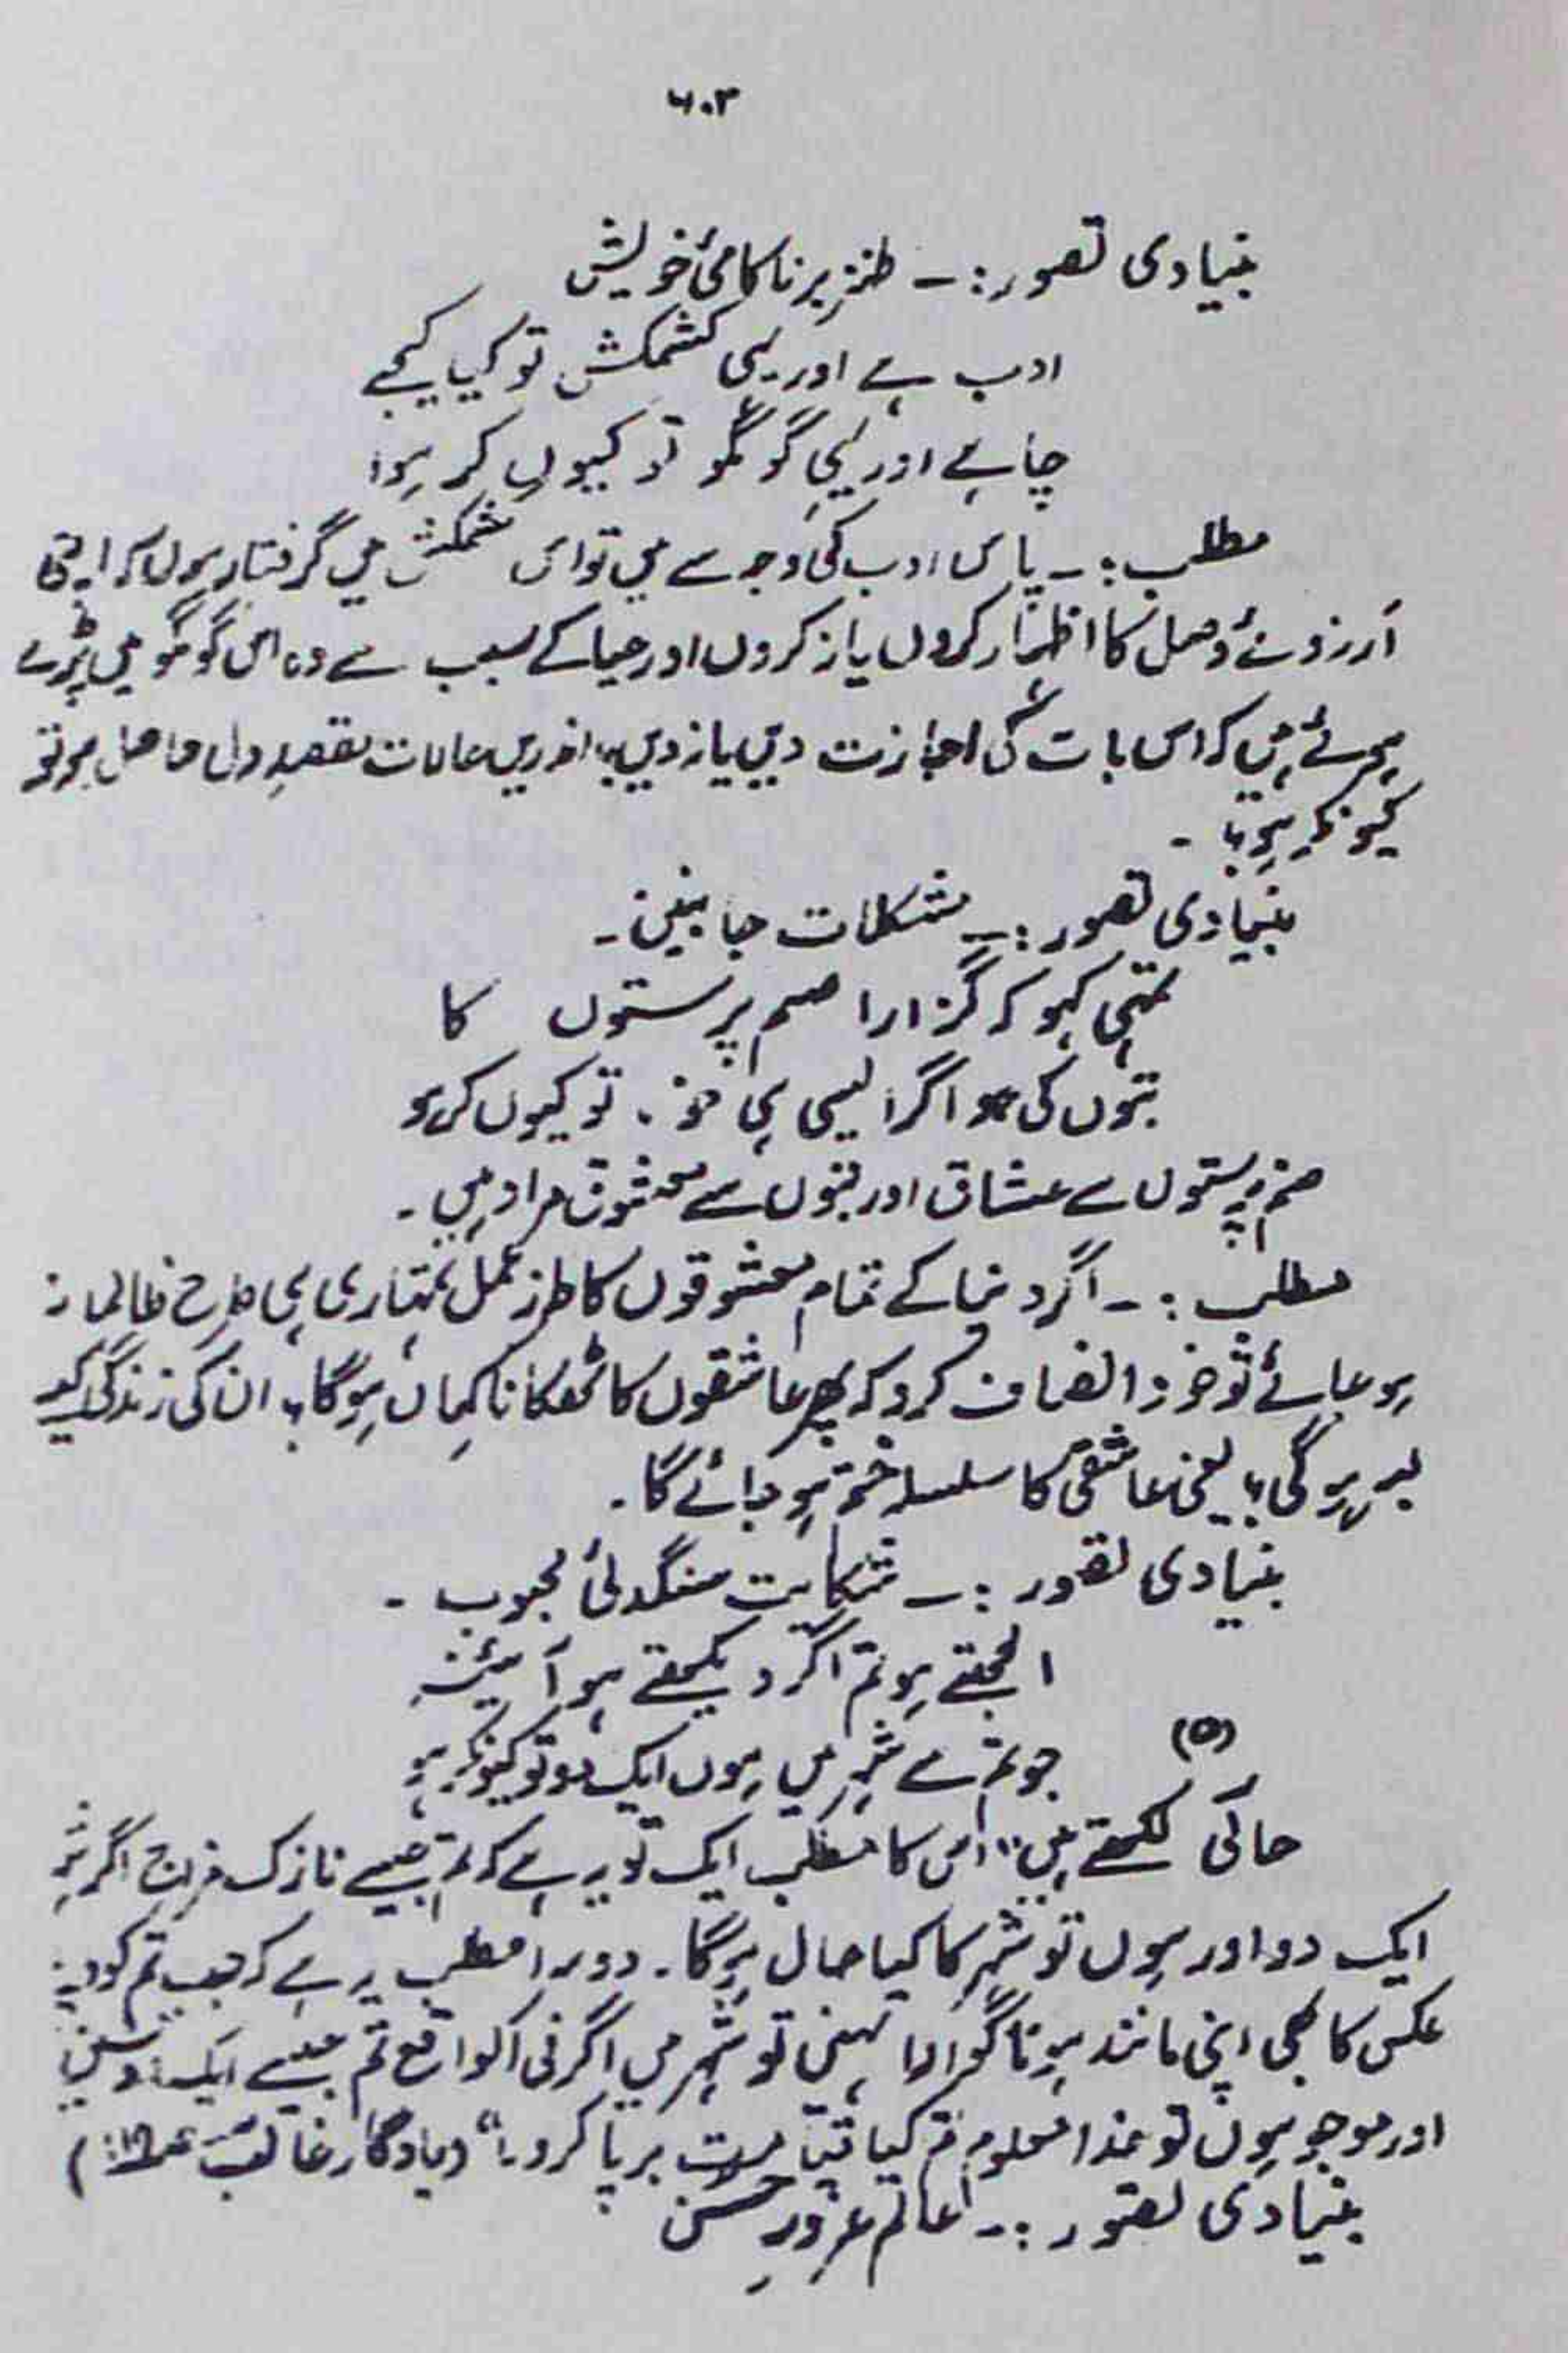 ۶۰۳
بنیادی تصور :۔ طنز بر ناکامیٔ خویش
ادب ہے اور یہی کشمکش تو کیا کیجے
حیا ہے اور یہی گو مگو تو کیوں کر ہو
مطلب :۔ پاس ادب کی وجہ سے میں تو اس کشمکش میں گرفتار ہوں کہ اپنی
آرزوئے وصل کا اظہار کروں یا نہ کروں اور حیا کے سبب سے وہ اس گو مگو میں پڑے
ہوئے ہیں کہ اس بات کی اجازت دیں یا نہ دیں، اندریں حالات مقصدِ دلی حاصل ہو تو
کیونکر ہو؟ ۔
بنیادی تصور :۔ مشکلات جانبین ۔
تمہی کہو کہ گزارا صنم پرستوں کا
بتوں کی ہو اگر ایسی ہی خو، تو کیوں کر ہو
صنم پرستوں سے عشاق اور بتوں سے معشوق مراد ہیں ۔
مطلب :۔ اگر دنیا کے تمام معشوقوں کا طرز عمل تمہاری ہی طرح ظالمانہ
ہو جائے تو خود انصاف کرو کہ پھر عاشقوں کا ٹھکانا کہاں ہوگا؟ ان کی زندگی کیسے
بسر ہوگی؟ یعنی عاشقی کا سلسلہ ختم ہو جائے گا ۔
بنیادی تصور :۔ شکایت سنگدلیٔ محبوب ۔
الجھتے ہو تم اگر دیکھتے ہو آئینہ
(۵) جو تم سے شہر میں ہوں ایک دو تو کیونکر ہو
حالی لکھتے ہیں "اس کا مطلب ایک تو یہ ہے کہ تم جیسے نازک مزاج اگر شہر
ایک دو اور ہوں تو شہر کا کیا حال ہوگا ۔ دوسرا مطلب یہ ہے کہ جب تم کو اپنے
عکس کا بھی اپنی مانند ہونا گوارا نہیں تو شہر میں اگر فی الواقع تم جیسے ایک دو حسین
اور موجود ہوں تو خدا معلوم تم کیا قیامت برپا کرو ۔" (یادگار غالب
بنیادی تصور :۔ عالم غرورِ حسن